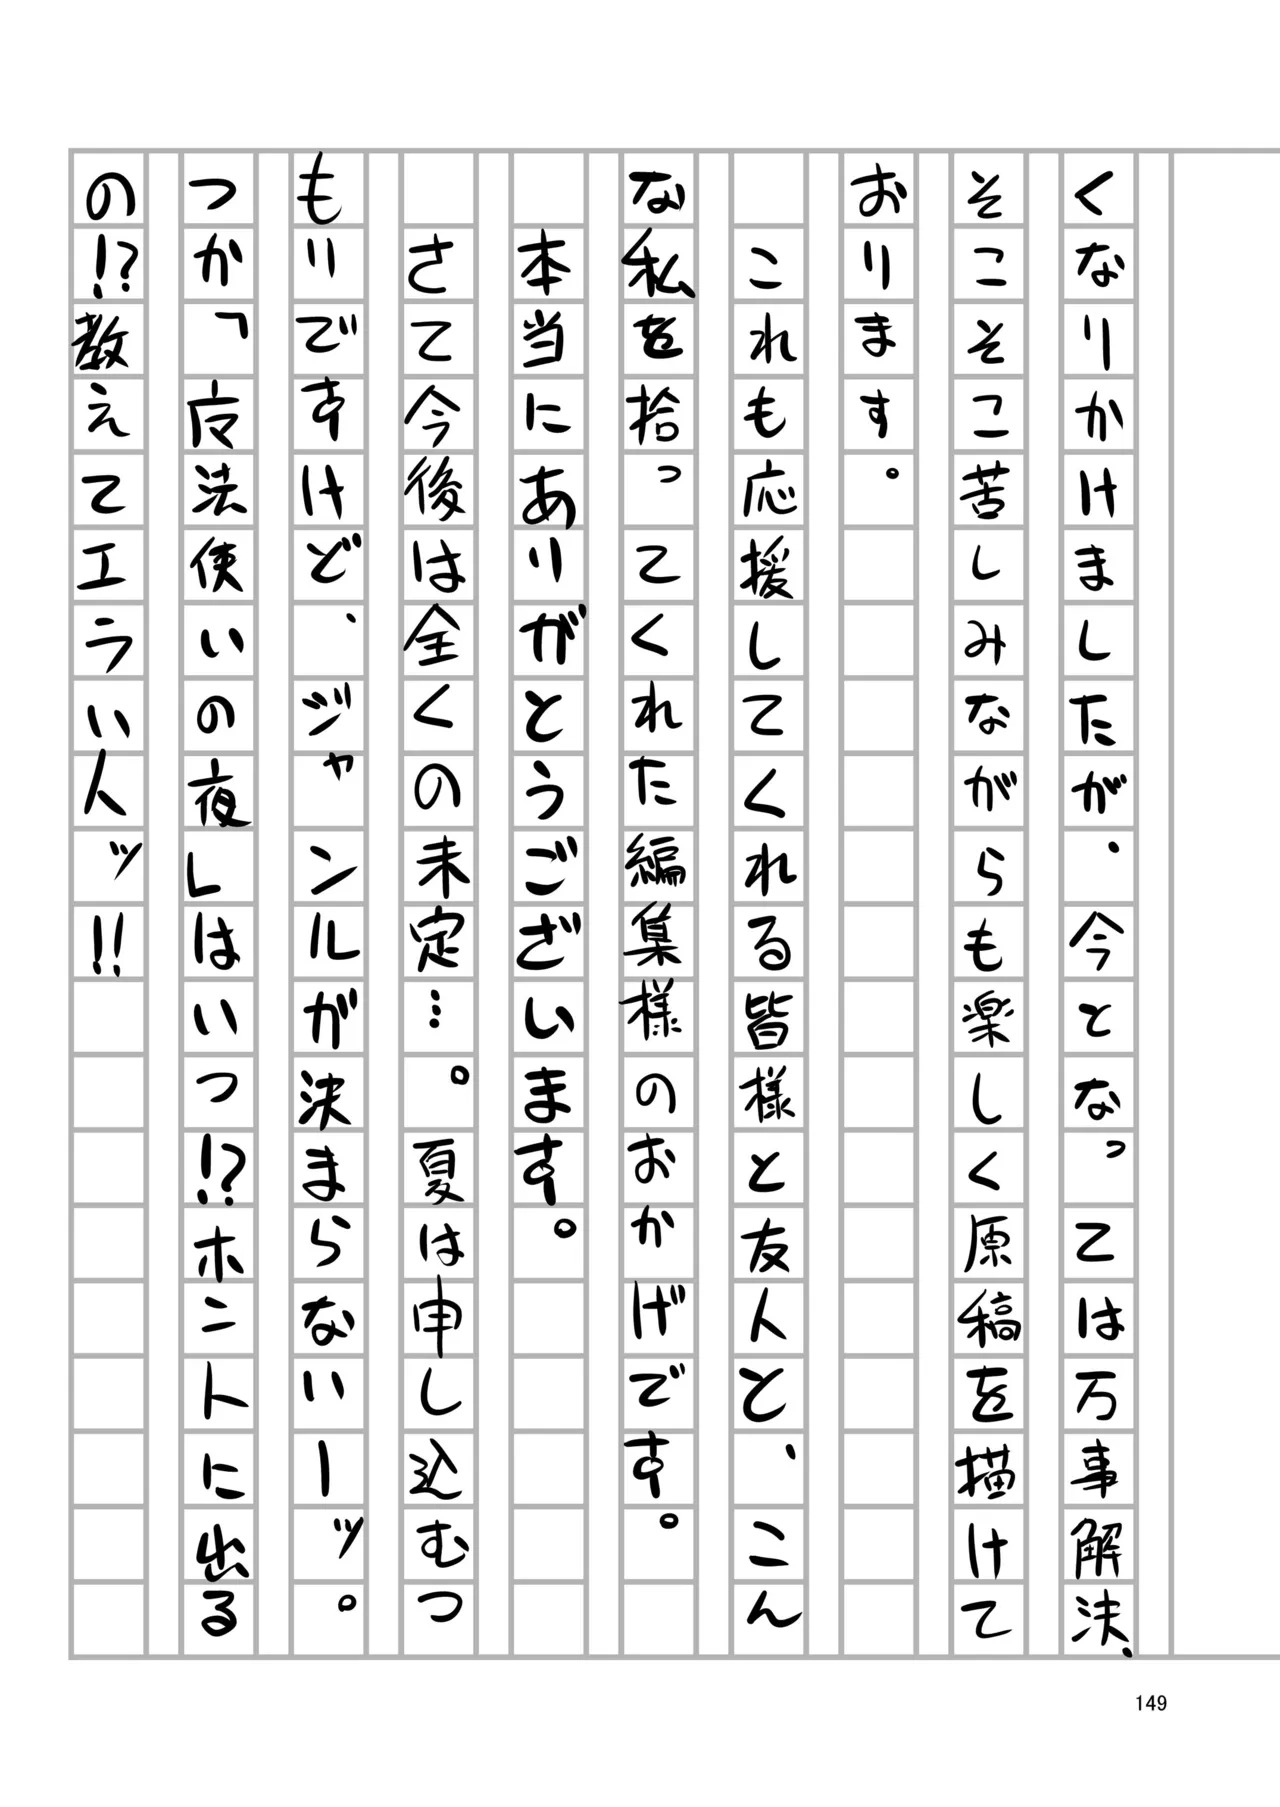 くなりかけましたが、今となっては万事解決、
そこそこ苦しみながらも楽しく原稿を描けて
おります。
これも応援してくれる皆様と友人と、こん
な私を拾ってくれた編集様のおかげです。
本当にありがとうございます。
さて今後は全くの未定…。夏は申し込むつ
もりですけど、ジャンルが決まらないーッ。
つか「魔法使いの夜」はいつ!?ホントに出る
の!?教えてエラい人ッ!!
149